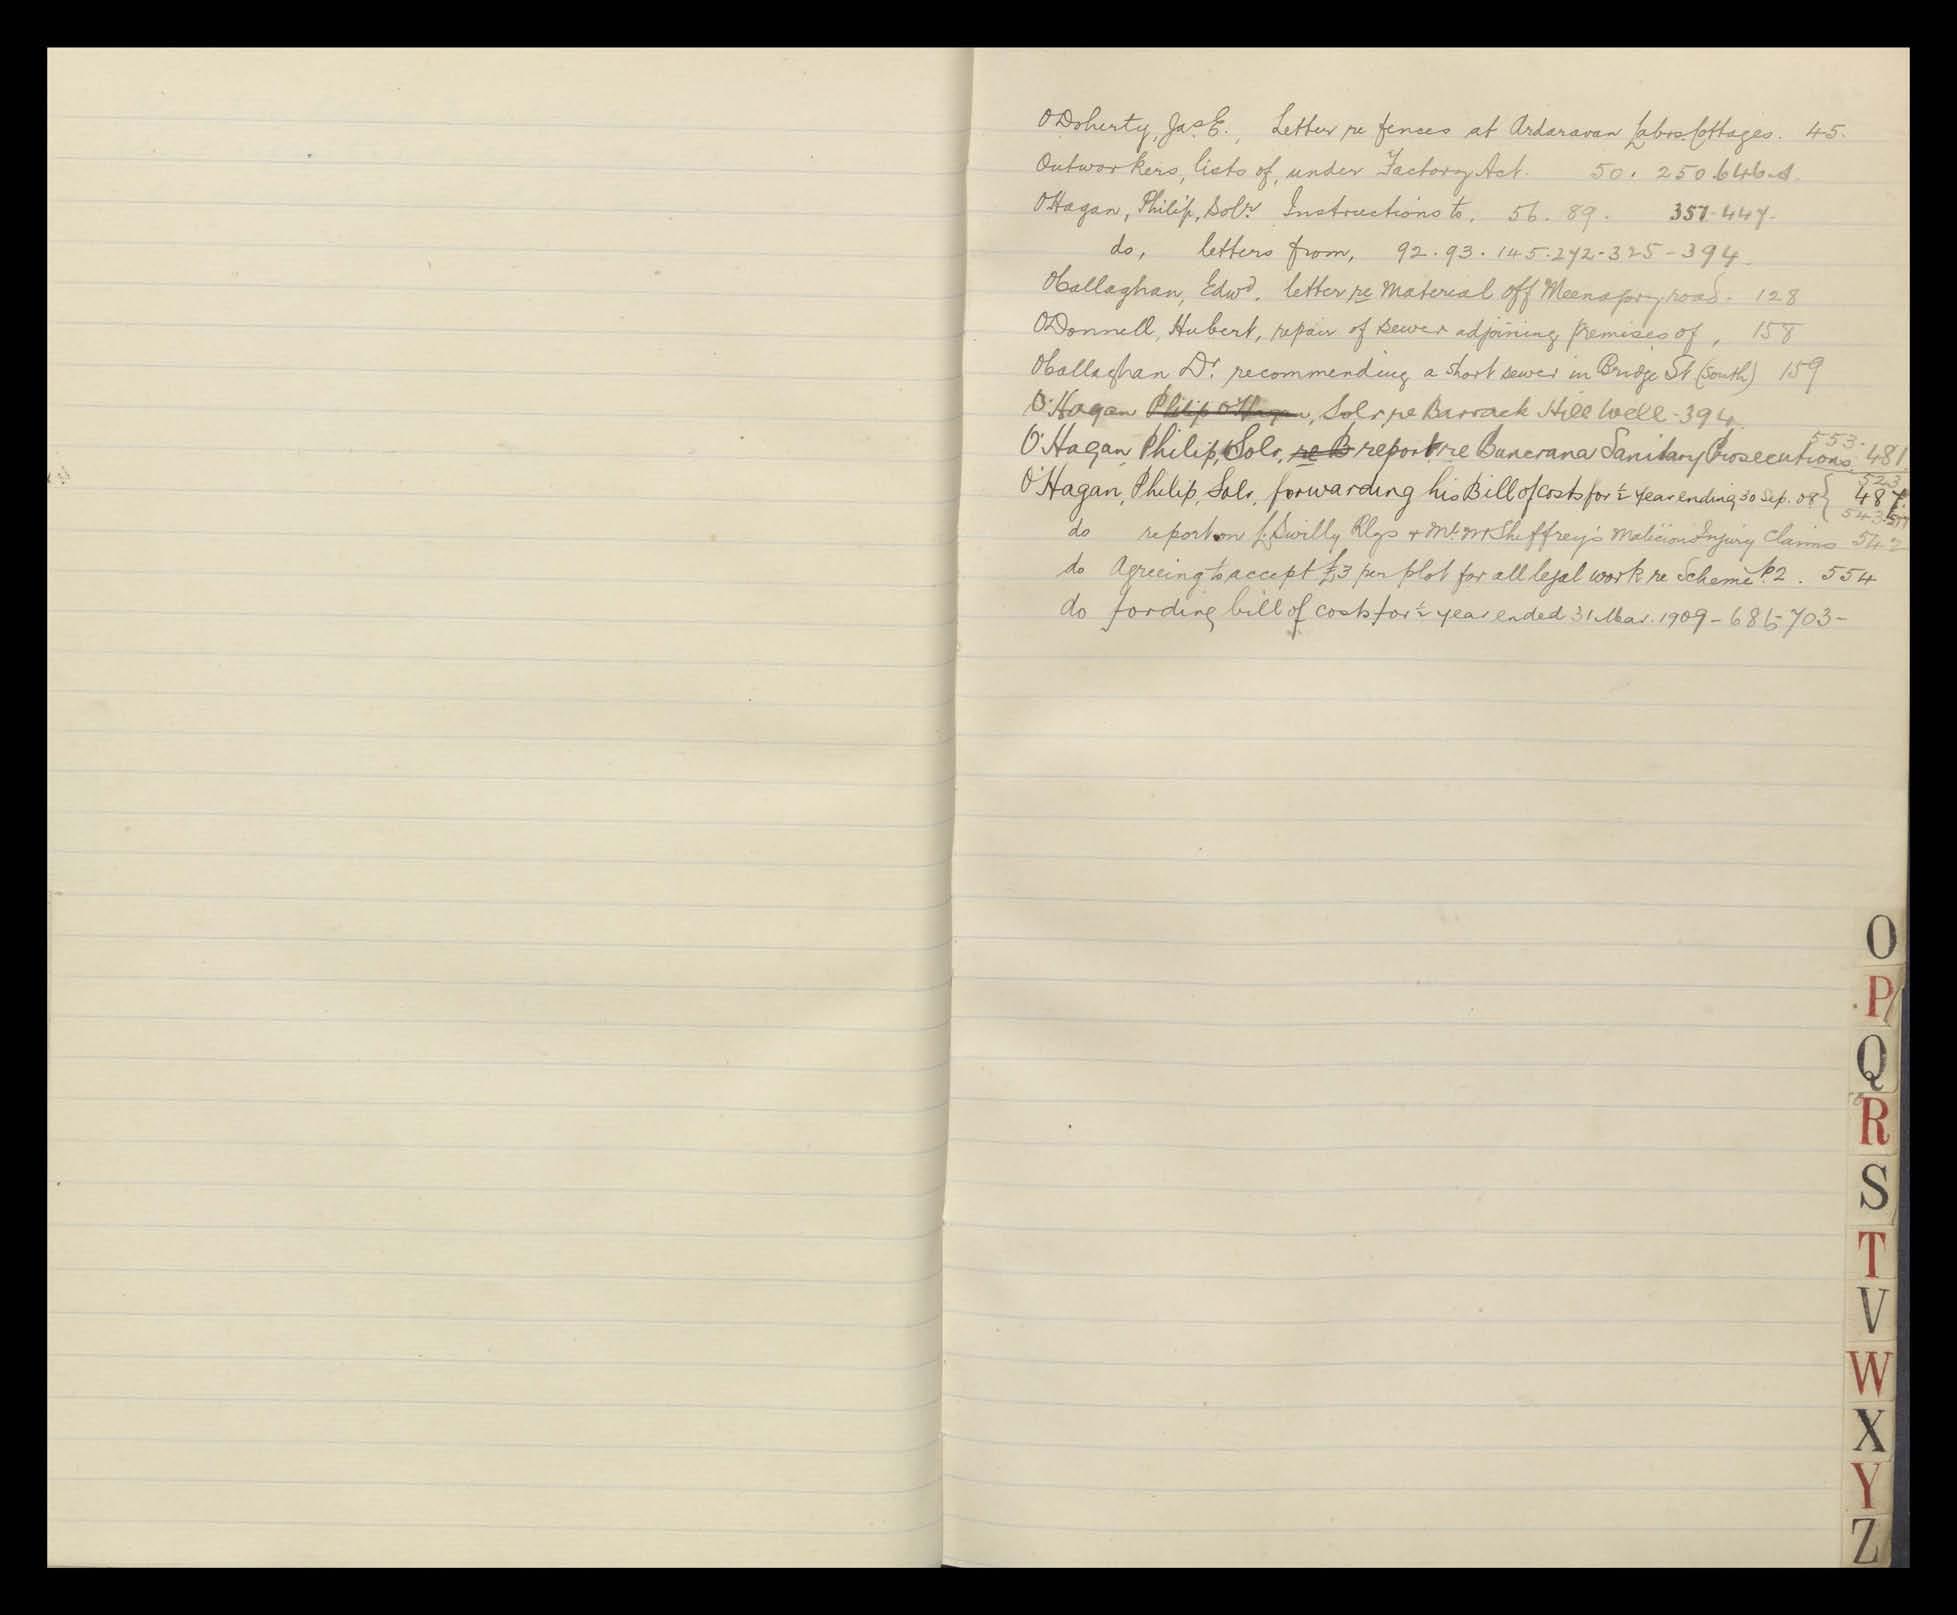 O'Doherty, Jas. E., Letter re fences at Ardaravan Labrs. Cottages. 45.
Outworkers, lists of, under Factory Act. 50. 250. 646.
O'Hagan, Philip, Solr. Instructions to. 56. 89. 357-447-
do, letters from, 92. 93. 145. 272-325-394.
O'Callaghan, Edwd. letter re Material off road. 128
O'Donnell, Hubert, repair of sewer adjoining premises of, 158
O'Callaghan Dr. recommending a short sewer in Bridge St (South) 159
O'Hagan Philip O'Hagan, Solr re Barrack Hill Well-394.
O'Hagan, Philip, Solr, re B report re Buncrana Sanitary Prosecutions. 553-481
O'Hagan, Philip, Solr, forwarding his Bill of costs for ½ year ending 30 Sep. 08 { 523 487. 543
do report on L. Swilly Rlys + Mr. McSheffrey's Malicious Injury Claims 542
do Agreeing to accept £3 per plot for all legal work re Scheme 2. 554
do fording bill of costs for ½ year ended 31 Mar. 1909-686-703-
O
P
Q
R
S
T
V
W
X
Y
Z